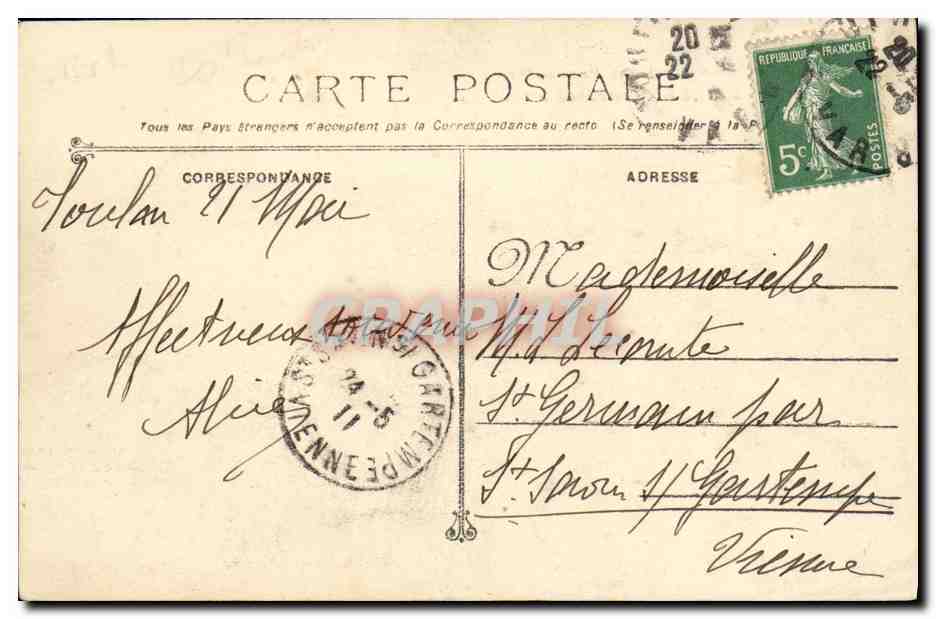 CARTE POSTALE
Tous les Pays étrangers n'acceptent pas la Correspondance au recto (Se renseigner à la P
20
22
VAR
20
22 -5
VAR
REPUBLIQUE FRANÇAISE
5c
POSTES
CORRESPONDANCE
ADRESSE
Toulon 21 Mai
Affectueux
Alice
Mademoiselle
M. L. Lecomte
St Germain par
St Savin s/ Gartempe
Vienne
ST SAVIN S/ GARTEMPE
24-5
11
VIENNE
CPARAMA
GRAPHIL